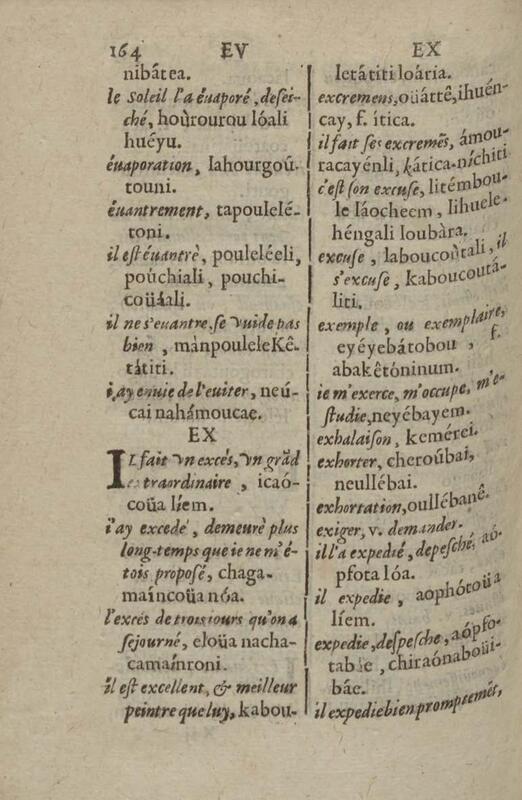 164 EV EX
nibátea.
le Soleil l'a éuaporé, desei-
ché, hoùrourou lóali
huéyu.
éuaporation, lahourgoú-
touni.
éuantrement, tapoulelé-
toni.
il est éuantrè, pouleléeli,
poúchiali, pouchi-
coüáali.
il ne s'euantre, se vuide pas
bien, mánpouleleKê-
tátiti.
i'ay enuie de l'euiter, neú-
cai nahámoucae.
EX
IL fait vn excés, vn grãd
extraordinaire, icaó-
coüa líem.
i'ay excedé, demeurè plus
long-temps que ie ne m'é-
tois proposé, chaga-
maíncoüa nóa.
l'excés de trois iours qu'on a
sejourné, eloüa nacha-
camaínroni.
il est excellent, & meilleur
peintre que luy, kabou-
letátiti loária.
excremens, oüáttê, ihuén-
cay, f. ítica.
il fait ses excremẽs, ámou-
racayénli, kática-níchiti
c'est son excuse, litémbou-
le láocheem, lihuele-
héngali loubàra.
excuse, laboucoùtali, il
s'excuse, kaboucoutá-
liti.
exemple, ou exemplaire,
eyéyebátobou, f.
abakêtóninum.
ie m'exerce, m'occupe, m'e-
studie, neyébayem.
exhalaison, kemérei.
exhorter, cheroúbai,
neullébai.
exhortation, oullébanê.
exiger, v. demander.
ill'a expedié, depesché, aó-
pfota lóa.
il expedie, aophótoüa
líem.
expedie, despesche, aópfo-
table, chiraónaboüi-
báe.
il expedie bien promptemẽt,